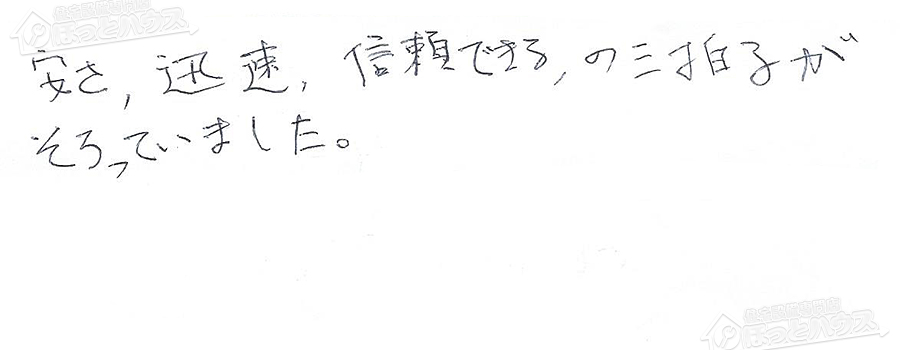 安さ, 迅速, 信頼できる, の三拍子が
そろっていました。
住宅設備専門店
ほっとハウス